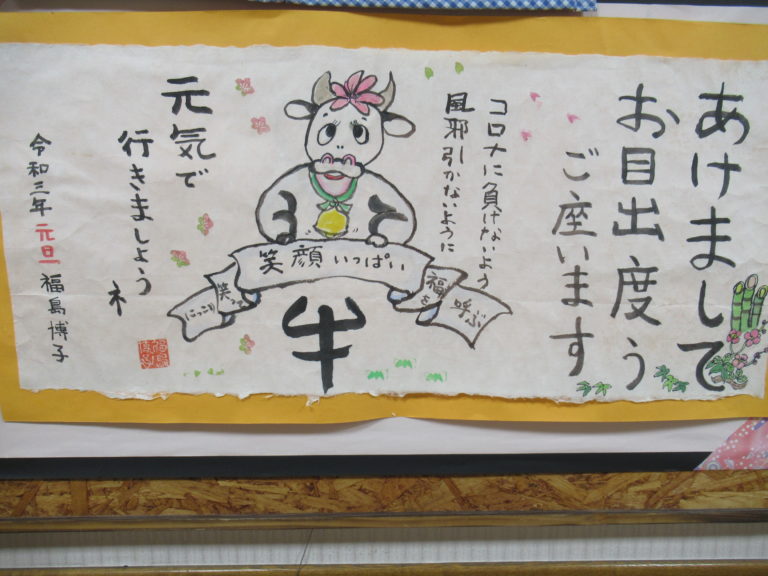 あけまして
お目出度う
ご座います
コロナに負けないよう
風邪引かないように
笑顔いっぱい
福を呼ぶ
にっこり笑って
牛
元気で
行きましょう
ネ
令和三年元旦福島博子